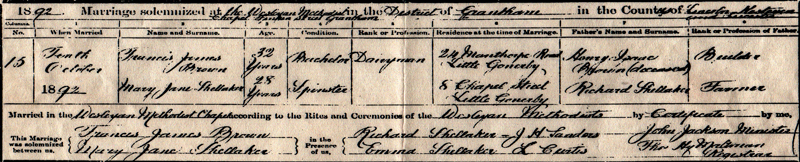 1892 Marriage solemnized at the Wesleyan Methodist in the District of Grantham in the County of Lincoln
Chapel Grantham
Columns.
No. When Married Name and Surname. Age. Condition. Rank or Profession. Residence at the time of Marriage. Father's Name and Surname. Rank or Profession of Father.
15 Tenth October 1892 Francis James Brown 32 Years Bachelor Dairyman 24 Manthorpe Road Little Gonerby Henry Isaac Brown (deceased) Builder
Mary Jane Shellaker 28 Years Spinster 8 Chapel Street Little Gonerby Richard Shellaker Farmer
Married in the Wesleyan Methodist Chapel according to the Rites and Ceremonies of the Wesleyan Methodists by Certificate by me,
This Marriage was solemnized between us, Francis James Brown in the Presence of us, Richard Shellaker J H Sanders John Jackson Minister
Mary Jane Shellaker Emma Shellaker L Curtis Thos Hy Registrar